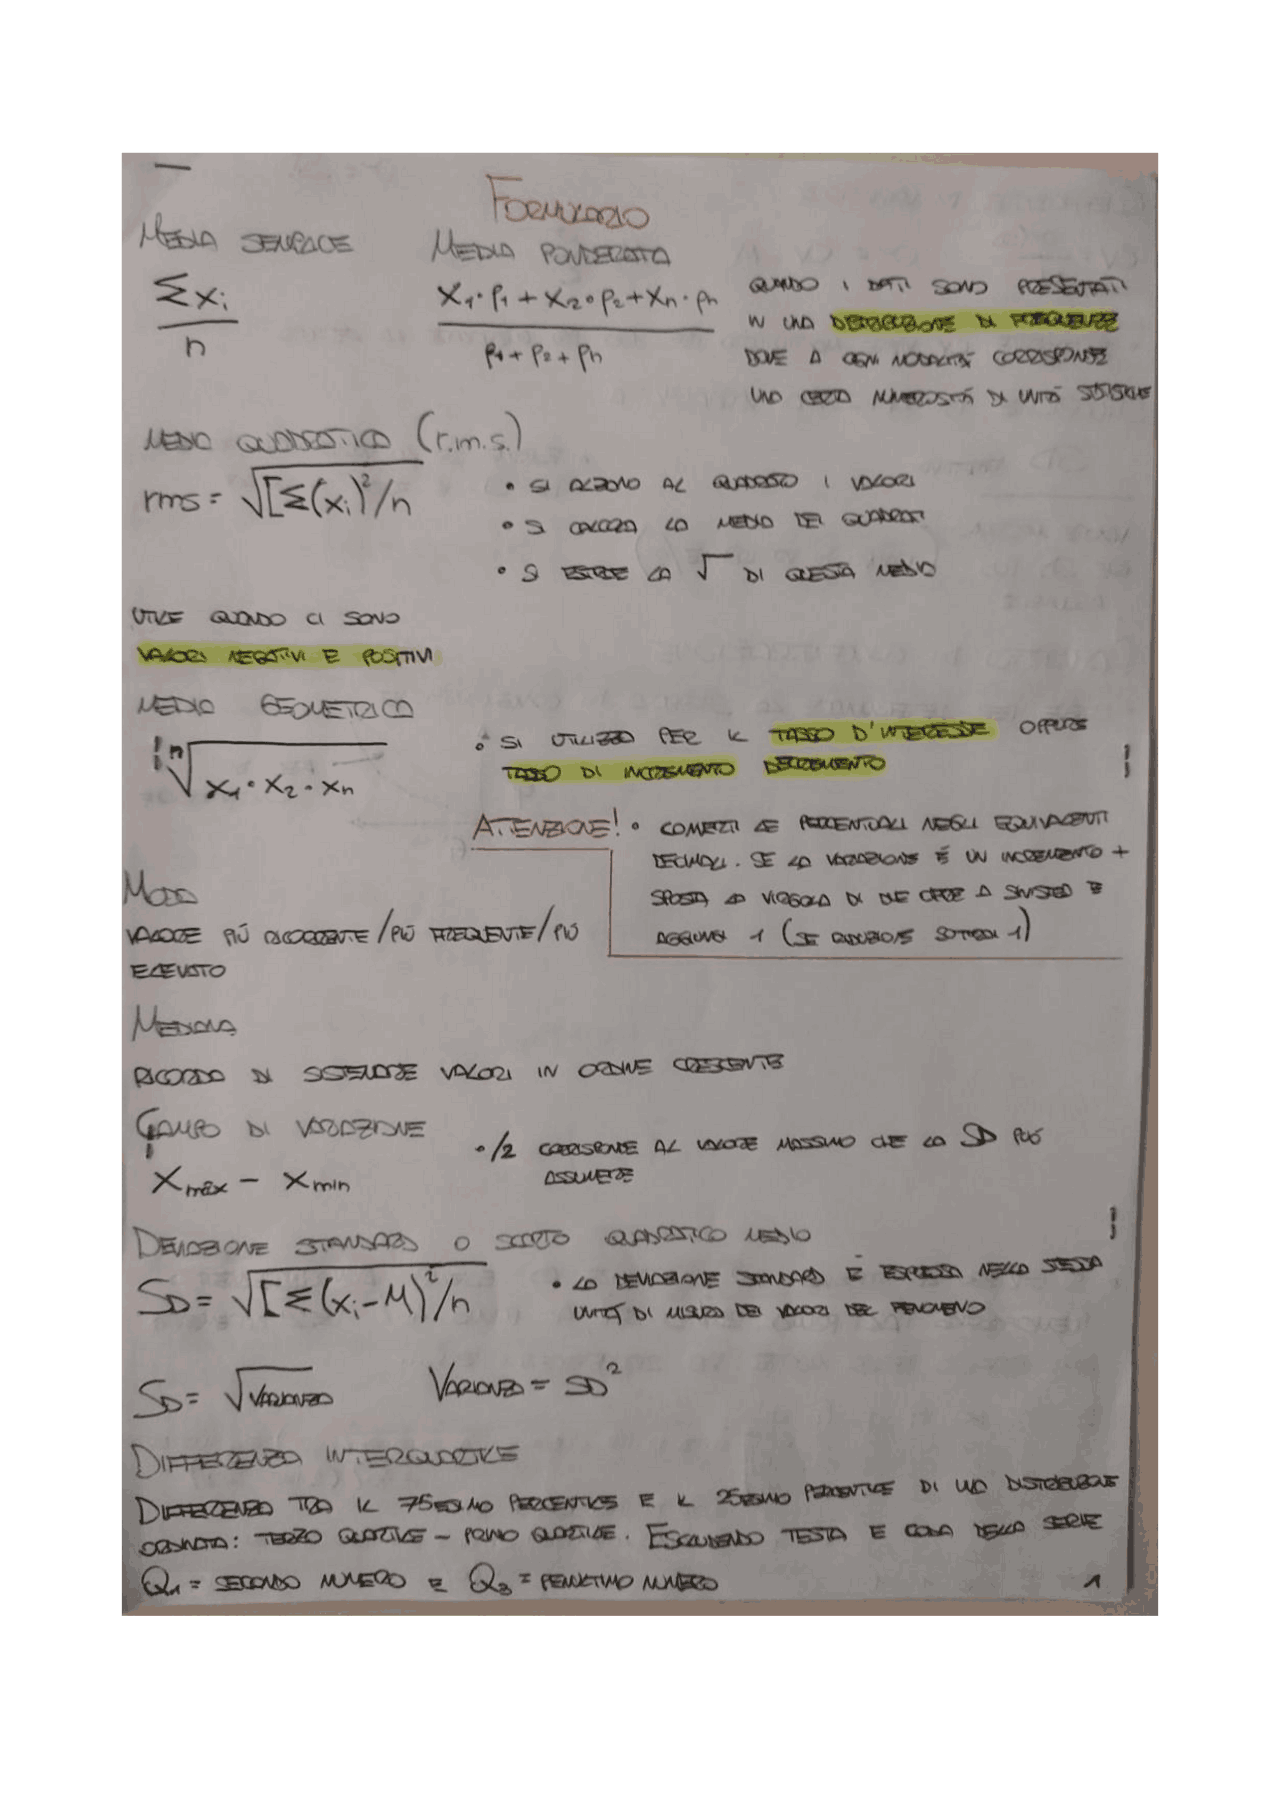 FORMULARIO
MEDIA SEMPLICE
Σxi
n
MEDIA PONDERATA
x1·p1 + x2·p2 + xn·pn
p1 + p2 + pn
QUANDO I DATI SONO PRESENTATI
IN UNA DISTRIBUZIONE DI FREQUENZE
DOVE A OGNI MODALITÀ CORRISPONDE
UNA CERTA NUMEROSITÀ DI UNITÀ STATISTICHE
MEDIA QUADRATICA (r.m.s.)
rms = √[Σ(xi)²/n
• SI ALZANO AL QUADRATO I VALORI
• SI CALCOLA LA MEDIA DEI QUADRATI
• SI ESTRAE LA √ DI QUESTA MEDIA
UTILE QUANDO CI SONO
VALORI NEGATIVI E POSITIVI
MEDIA GEOMETRICA
! n√x1·x2·xn
• SI UTILIZZA PER IL TASSO D'INTERESSE OPPURE
TASSO DI INCREMENTO DECREMENTO
!
ATTENZIONE! • CONVERTI LE PERCENTUALI NEGLI EQUIVALENTI
DECIMALI. SE LA VARIAZIONE È UN INCREMENTO +
SPOSTA LA VIRGOLA DI DUE CIFRE A SINISTRA E
AGGIUNGI 1 (SE RIDUZIONE SOTTRAI 1)
MODA
VALORE PIÙ RICORRENTE/PIÙ FREQUENTE/PIÙ
ELEVATO
MEDIANA
RICORDA DI SISTEMARE VALORI IN ORDINE CRESCENTE
CAMPO DI VARIAZIONE
!
Xmax - Xmin
• /2 CORRISPONDE AL VALORE MASSIMO CHE LA SD PUÒ
ASSUMERE
!
DEVIAZIONE STANDARD O SCARTO QUADRATICO MEDIO
SD = √[Σ(xi-M)²/n
• LA DEVIAZIONE STANDARD È ESPRESSA NELLA STESSA
UNITÀ DI MISURA DEI VALORI DEL FENOMENO
SD = √VARIANZA
VARIANZA = SD²
DIFFERENZA INTERQUARTILE
DIFFERENZA TRA IL 75ESIMO PERCENTILE E IL 25ESIMO PERCENTILE DI UNA DISTRIBUZIONE
ORDINATA: TERZO QUARTILE - PRIMO QUARTILE. ESCLUDENDO TESTA E CODA DELLA SERIE
Q1 = SECONDO NUMERO E Q3 = PENULTIMO NUMERO
1